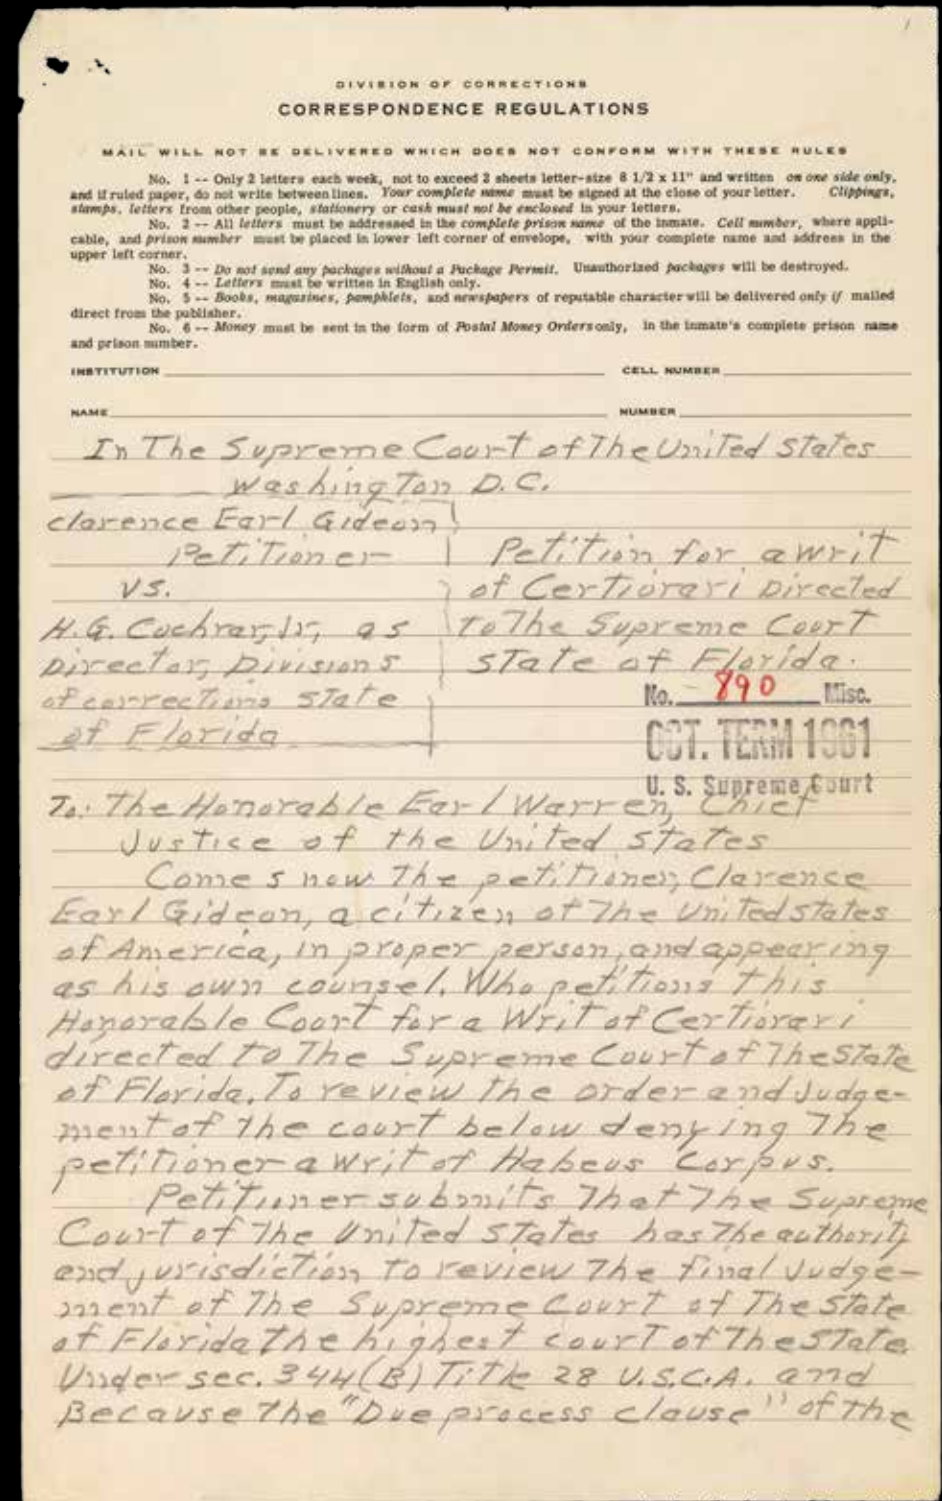 1
DIVISION OF CORRECTIONS
CORRESPONDENCE REGULATIONS
MAIL WILL NOT BE DELIVERED WHICH DOES NOT CONFORM WITH THESE RULES
No. 1 -- Only 2 letters each week, not to exceed 2 sheets letter-size 8 1/2 x 11" and written on one side only,
and if ruled paper, do not write between lines. Your complete name must be signed at the close of your letter. Clippings,
stamps, letters from other people, stationery or cash must not be enclosed in your letters.
No. 2 -- All letters must be addressed in the complete prison name of the inmate. Cell number, where appli-
cable, and prison number must be placed in lower left corner of envelope, with your complete name and address in the
upper left corner.
No. 3 -- Do not send any packages without a Package Permit. Unauthorized packages will be destroyed.
No. 4 -- Letters must be written in English only.
No. 5 -- Books, magazines, pamphlets, and newspapers of reputable character will be delivered only if mailed
direct from the publisher.
No. 6 -- Money must be sent in the form of Postal Money Orders only, in the inmate's complete prison name
and prison number.
INSTITUTION CELL NUMBER
NAME NUMBER
In The Supreme Court of The United States
Washington D.C.
Clarence Earl Gideon
Petitioner
vs.
H.G. Cochran, Jr, as
Director, Divisions
of corrections State
of Florida
Petition for a writ
of Certiorari Directed
to The Supreme Court
State of Florida.
No. 890 Misc.
OCT. TERM 1961
U. S. Supreme Court
To: The Honorable Earl Warren, Chief
Justice of the United States
Comes now The petitioner, Clarence
Earl Gideon, a citizen of The United states
of America, in proper person, and appearing
as his own counsel. Who petitions This
Honorable Court for a Writ of Certiorari
directed to The Supreme Court of The State
of Florida. To review the order and Judge-
ment of the court below denying The
petitioner a writ of Habeus Corpus.
Petitioner submits That The Supreme
Court of The United States has The authority
and jurisdiction to review The final Judge-
ment of The Supreme Court of The State
of Florida the highest court of The State
Under sec. 344(B) Title 28 U.S.C.A. and
Because The "Due process clause" of the